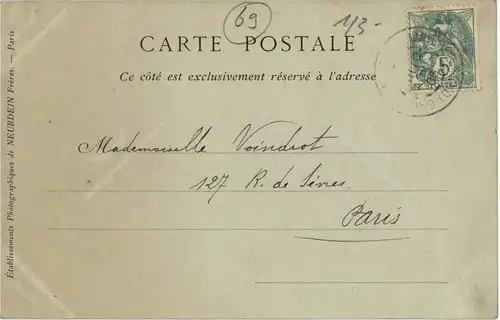 69
1/3-
CARTE POSTALE
Ce côté est exclusivement réservé à l'adresse
5c
Mademoiselle Voindrot
127 R. de Sèvres.
Paris
Établissements Photographiques de NEURDEIN Frères. — Paris